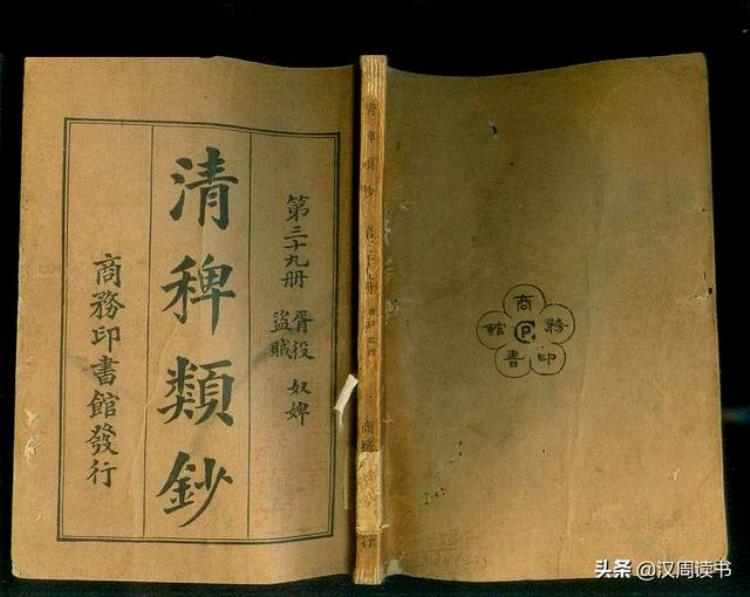 第三十九册
胥役 奴婢
盜賊
清稗類鈔
商務印書館發行
清稗類鈔
商務印書館
CP
头条 @汉周读书